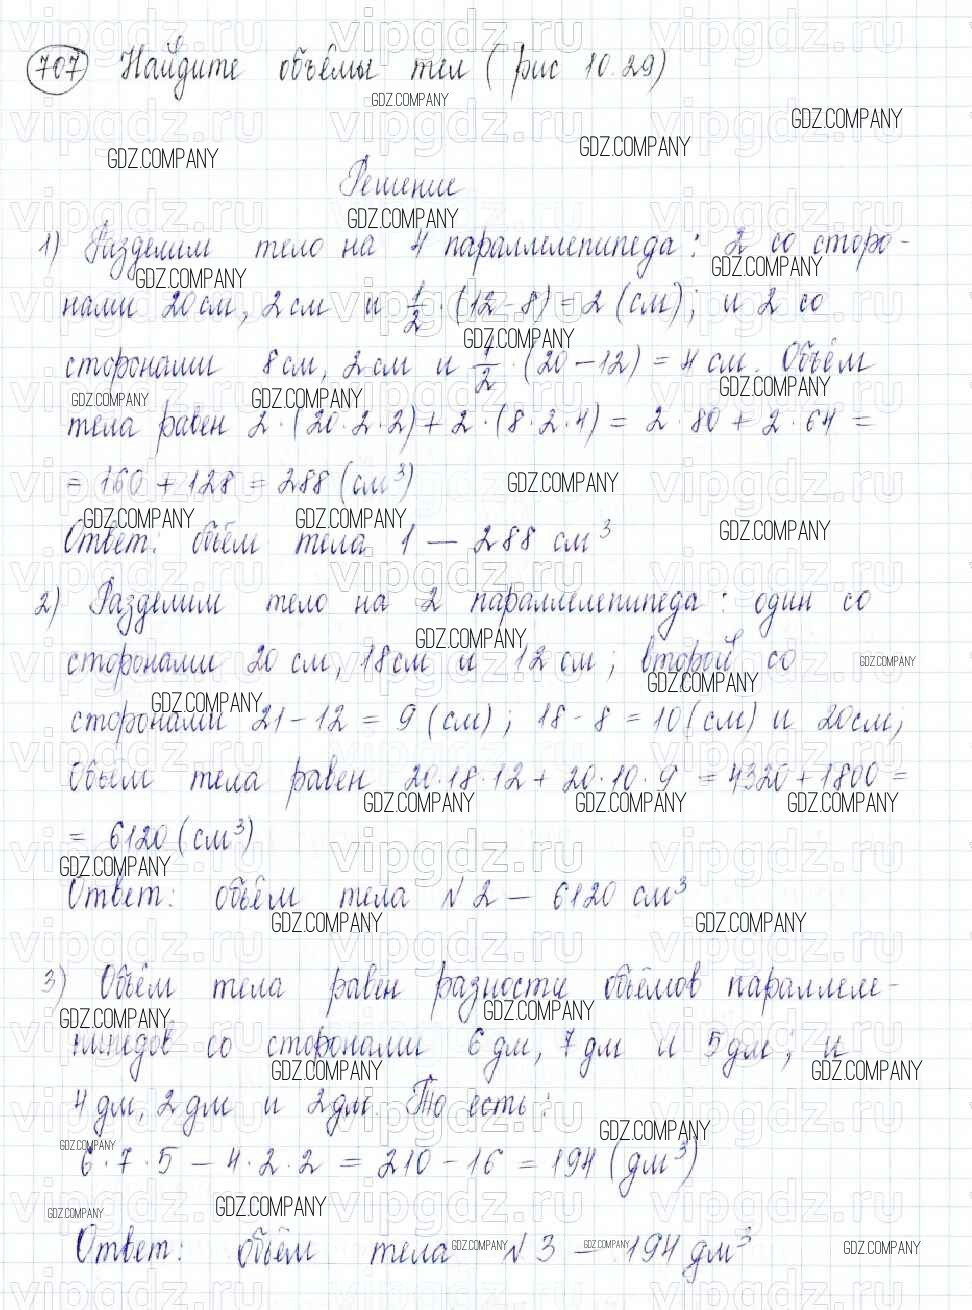 707 Найдите объёмы тел (рис 10.29)
Решение
1) Разделим тело на 4 параллелепипеда: 2 со сторо-
нами 20 см, 2 см и 1/2 · (12 - 8) = 2 (см); и 2 со
сторонами 8 см, 2 см и 1/2 · (20 - 12) = 4 см. Объём
тела равен 2 · (20 · 2 · 2) + 2 · (8 · 2 · 4) = 2 · 80 + 2 · 64 =
= 160 + 128 = 288 (см³)
Ответ: объём тела 1 — 288 см³
2) Разделим тело на 2 параллелепипеда: один со
сторонами 20 см, 18 см и 12 см; второй со
сторонами 21 - 12 = 9 (см); 18 - 8 = 10 (см) и 20 см;
Объём тела равен 20 · 18 · 12 + 20 · 10 · 9 = 4320 + 1800 =
= 6120 (см³)
Ответ: объём тела №2 — 6120 см³
3) Объём тела равен разности объёмов параллеле-
пипедов со сторонами 6 дм, 7 дм и 5 дм; и
4 дм, 2 дм и 2 дм. То есть:
6 · 7 · 5 - 4 · 2 · 2 = 210 - 16 = 194 (дм³)
Ответ: объём тела №3 — 194 дм³
GDZ.COMPANY
vipgdz.ru